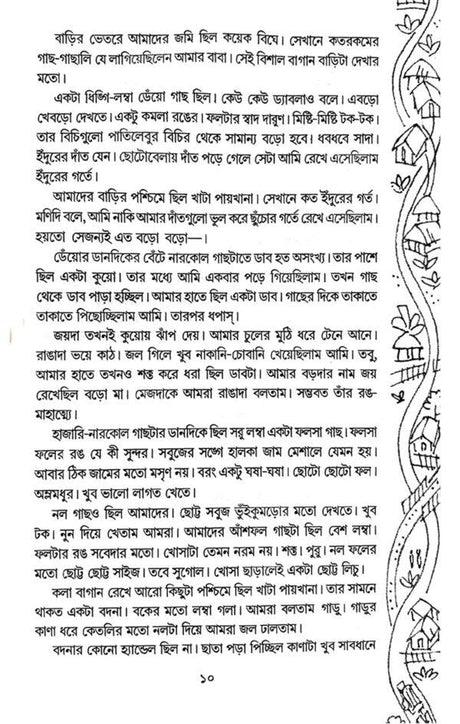 বাড়ির ভেতরে আমাদের জমি ছিল কয়েক বিঘে। সেখানে কতরকমের
গাছ-গাছালি যে লাগিয়েছিলেন আমার বাবা। সেই বিশাল বাগান বাড়িটা দেখার
মতো।
একটা ধিঙ্গি-লম্বা ডেঁয়ো গাছ ছিল। কেউ কেউ ড্যাবলাও বলে। এবড়ো
খেবড়ো দেখতে। একটু কমলা রঙের। ফলটার স্বাদ দারুণ। মিষ্টি-মিষ্টি টক-টক।
তার বিচিগুলো পাতিলেবুর বিচির থেকে সামান্য বড়ো হবে। ধবধবে সাদা।
ইঁদুরের দাঁত যেন। ছোটোবেলায় দাঁত পড়ে গেলে সেটা আমি রেখে এসেছিলাম
ইঁদুরের গর্তে।
আমাদের বাড়ির পশ্চিমে ছিল খাটা পায়খানা। সেখানে কত ইঁদুরের গর্ত।
মণিদি বলে, আমি নাকি আমার দাঁতগুলো ভুল করে ছুঁচোর গর্তে রেখে এসেছিলাম।
হয়তো সেজন্যই এত বড়ো বড়ো—।
ডেঁয়োর ডানদিকের বেঁটে নারকোল গাছটাতে ডাব হত অসংখ্য। তার পাশে
ছিল একটা কুয়ো। তার মধ্যে আমি একবার পড়ে গিয়েছিলাম। তখন গাছ
থেকে ডাব পাড়া হচ্ছিল। আমার হাতে ছিল একটা ডাব। গাছের দিকে তাকাতে
তাকাতে পিছোচ্ছিলাম আমি। তারপর ধপাস্।
জয়দা তখনই কুয়োয় ঝাঁপ দেয়। আমার চুলের মুঠি ধরে টেনে আনে।
রাঙাদা ভয়ে কাঠ। জল গিলে খুব নাকানি-চোবানি খেয়েছিলাম আমি। তবু,
আমার হাতে তখনও শক্ত করে ধরা ছিল ডাবটা। আমার বড়দার নাম জয়
রেখেছিল বড়ো মা। মেজদাকে আমরা রাঙাদা বলতাম। সম্ভবত তাঁর রঙ-
মাহাত্ম্যে।
হাজারি-নারকোল গাছটার ডানদিকে ছিল সরু লম্বা একটা ফলসা গাছ। ফলসা
ফলের রঙ যে কী সুন্দর। সবুজের সঙ্গে হালকা জাম মেশালে যেমন হয়।
আবার ঠিক জামের মতো মসৃণ নয়। বরং একটু ঘষা-ঘষা। ছোটো ছোটো ফল।
অম্লমধুর। খুব ভালো লাগত খেতে।
নল গাছও ছিল আমাদের। ছোট্ট সবুজ ভুঁইকুমড়োর মতো দেখতে। খুব
টক। নুন দিয়ে খেতাম আমরা। আমাদের আঁশফল গাছটা ছিল বেশ লম্বা।
ফলটার রঙ সবেদার মতো। খোসাটা তেমন নরম নয়। শক্ত। পুরু। নল ফলের
মতো ছোট্ট ছোট্ট সাইজ। তবে সুগোল। খোসা ছাড়ালেই একটা ছোট্ট লিচু।
কলা বাগান রেখে আরো কিছুটা পশ্চিমে ছিল খাটা পায়খানা। তার সামনে
থাকত একটা বদনা। বকের মতো লম্বা গলা। আমরা বলতাম গাড়ু। গাড়ুর
কাণা ধরে কেতলির মতো নলটা দিয়ে আমরা জল ঢালতাম।
বদনার কোনো হ্যান্ডেল ছিল না। ছাতা পড়া পিচ্ছিল কাণাটা খুব সাবধানে
১০